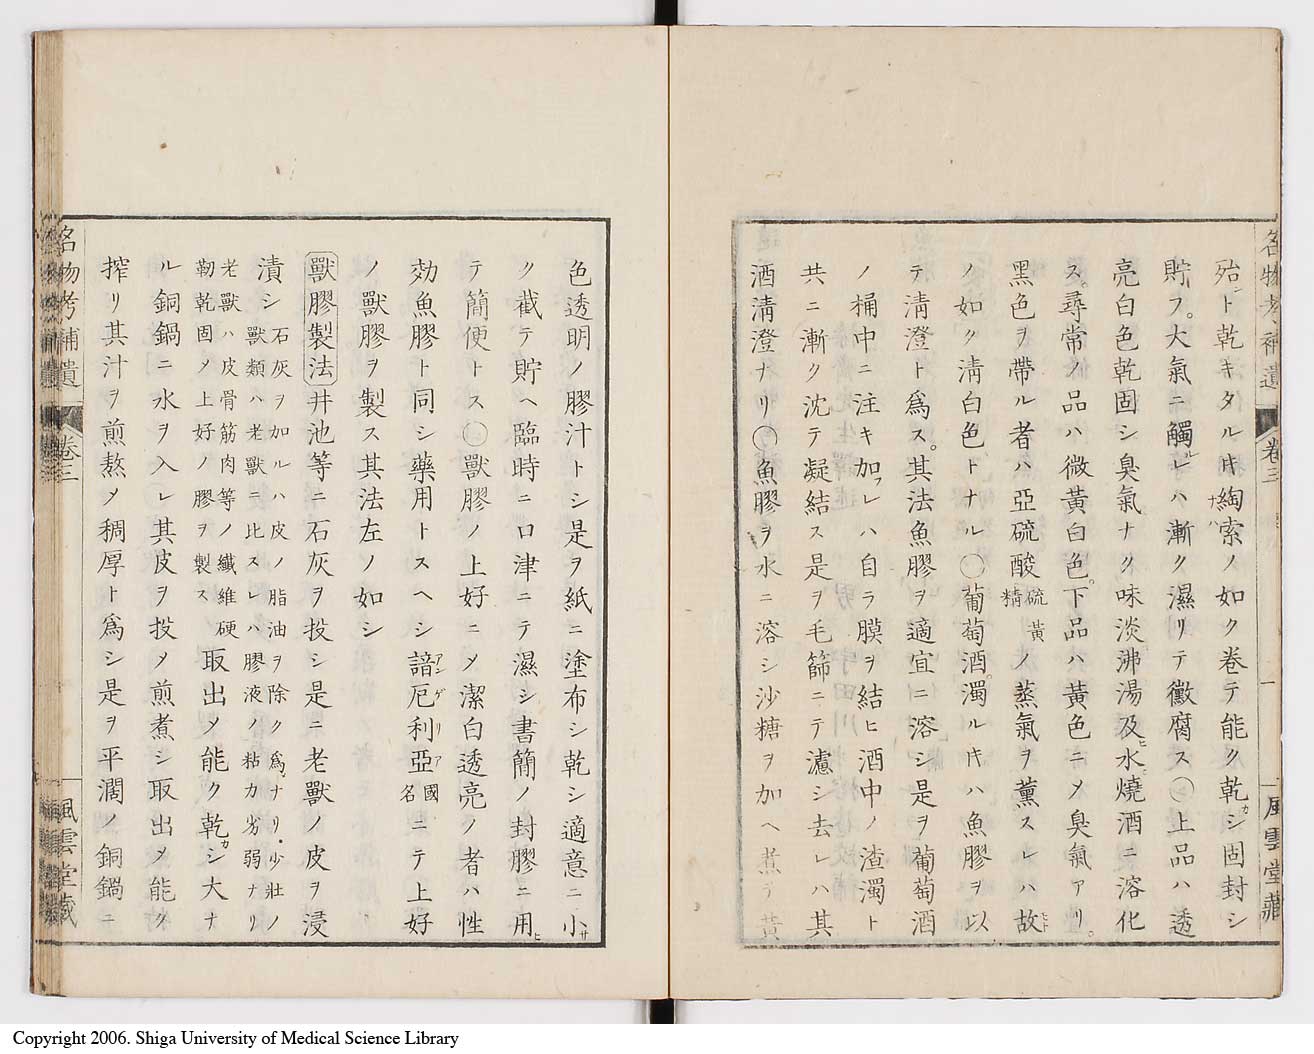 名物考補遺 卷三 一 風雲堂藏
殆ント乾キタルキ綯索ノ如ク卷テ能ク乾シ固封シ
貯フ。大氣ニ觸レハ漸ク濕リテ黴腐ス〇上品ハ透
亮白色乾固シ臭氣ナク味淡沸湯及ヒ水燒酒ニ溶化
ス。尋常ノ品ハ微黄白色。下品ハ黄色ニメ臭氣アリ。
黑色ヲ帶ル者ハ亞硫酸硫黄精ノ蒸氣ヲ薰スレハ故
ノ如ク淸白色トナル〇葡萄酒。濁ルキハ魚膠ヲ以
テ淸澄ト爲ス。其法魚膠ヲ適宜ニ溶シ是ヲ葡萄酒
ノ桶中ニ注キ加フレハ自ラ膜ヲ結ヒ酒中ノ渣濁ト
共ニ漸ク沈テ凝結ス是ヲ毛篩ニテ濾シ去レハ其
酒淸澄ナリ〇魚膠ヲ水ニ溶シ沙糖ヲ加ヘ煮テ黄
色透明ノ膠汁トシ是ヲ紙ニ塗布シ乾シ適意ニ小
ク截テ貯ヘ臨時ニ口津ニテ濕シ書簡ノ封膠ニ用ヒ
テ簡便トス〇獸膠ノ上好ニメ潔白透亮ノ者ハ性
効魚膠ト同シ藥用トスヘシ諳厄利亞國名ニテ上好
ノ獸膠ヲ製ス其法左ノ如シ
獸膠製法井池等ニ石灰ヲ投シ是ニ老獸ノ皮ヲ浸
漬シ石灰ヲ加ルハ皮ノ脂油ヲ除ク爲ナリ・少壯ノ
獸類ハ老獸ニ比スレハ膠液ノ粘力劣弱ナリ
老獸ハ皮骨筋肉等ノ纎維硬
靭乾固メ上好ノ膠ヲ製ス取出メ能ク乾シ大ナ
ル銅鍋ニ水ヲ入レ其皮ヲ投メ煎煮シ取出メ能ク
搾リ其汁ヲ煎熬メ稠厚ト爲シ是ヲ平濶ノ銅鍋ニ
名物考補遺 卷三 風雲堂藏
Copyright 2006. Shiga University of Medical Science Library